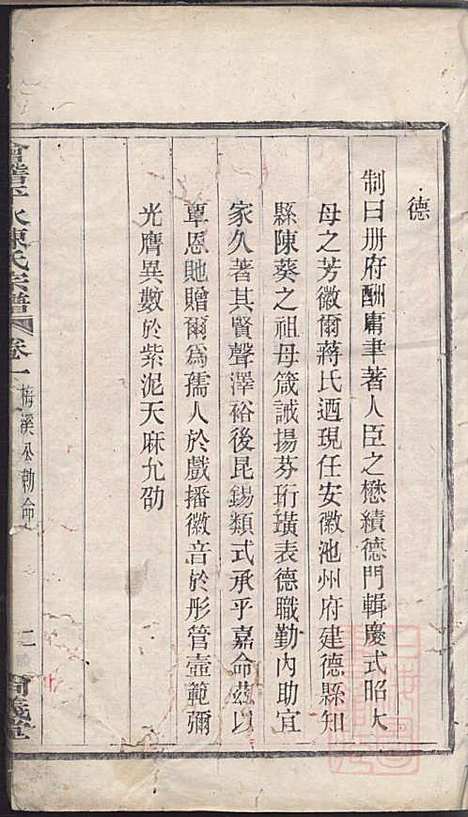 德
制曰冊府酬庸聿著人臣之懋績德門輯慶式昭大
母之芳徽爾蔣氏迺現任安徽池州府建德縣知
縣陳葵之祖母箴誡揚芬珩璜表德職勤內助宜
家久著其賢聲澤裕後昆錫類式承乎嘉命茲以
覃恩貤贈爾為孺人於戲播徽音於彤管壼範彌
光膺異數於紫泥天庥允劭
會稽平水陳氏宗譜 卷一 梅溪公勅命 二